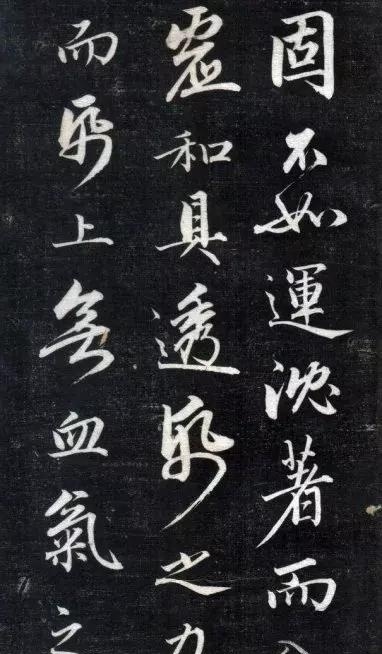 固不如運沈著而
虛和具透紙之力
而紙上無血氣之